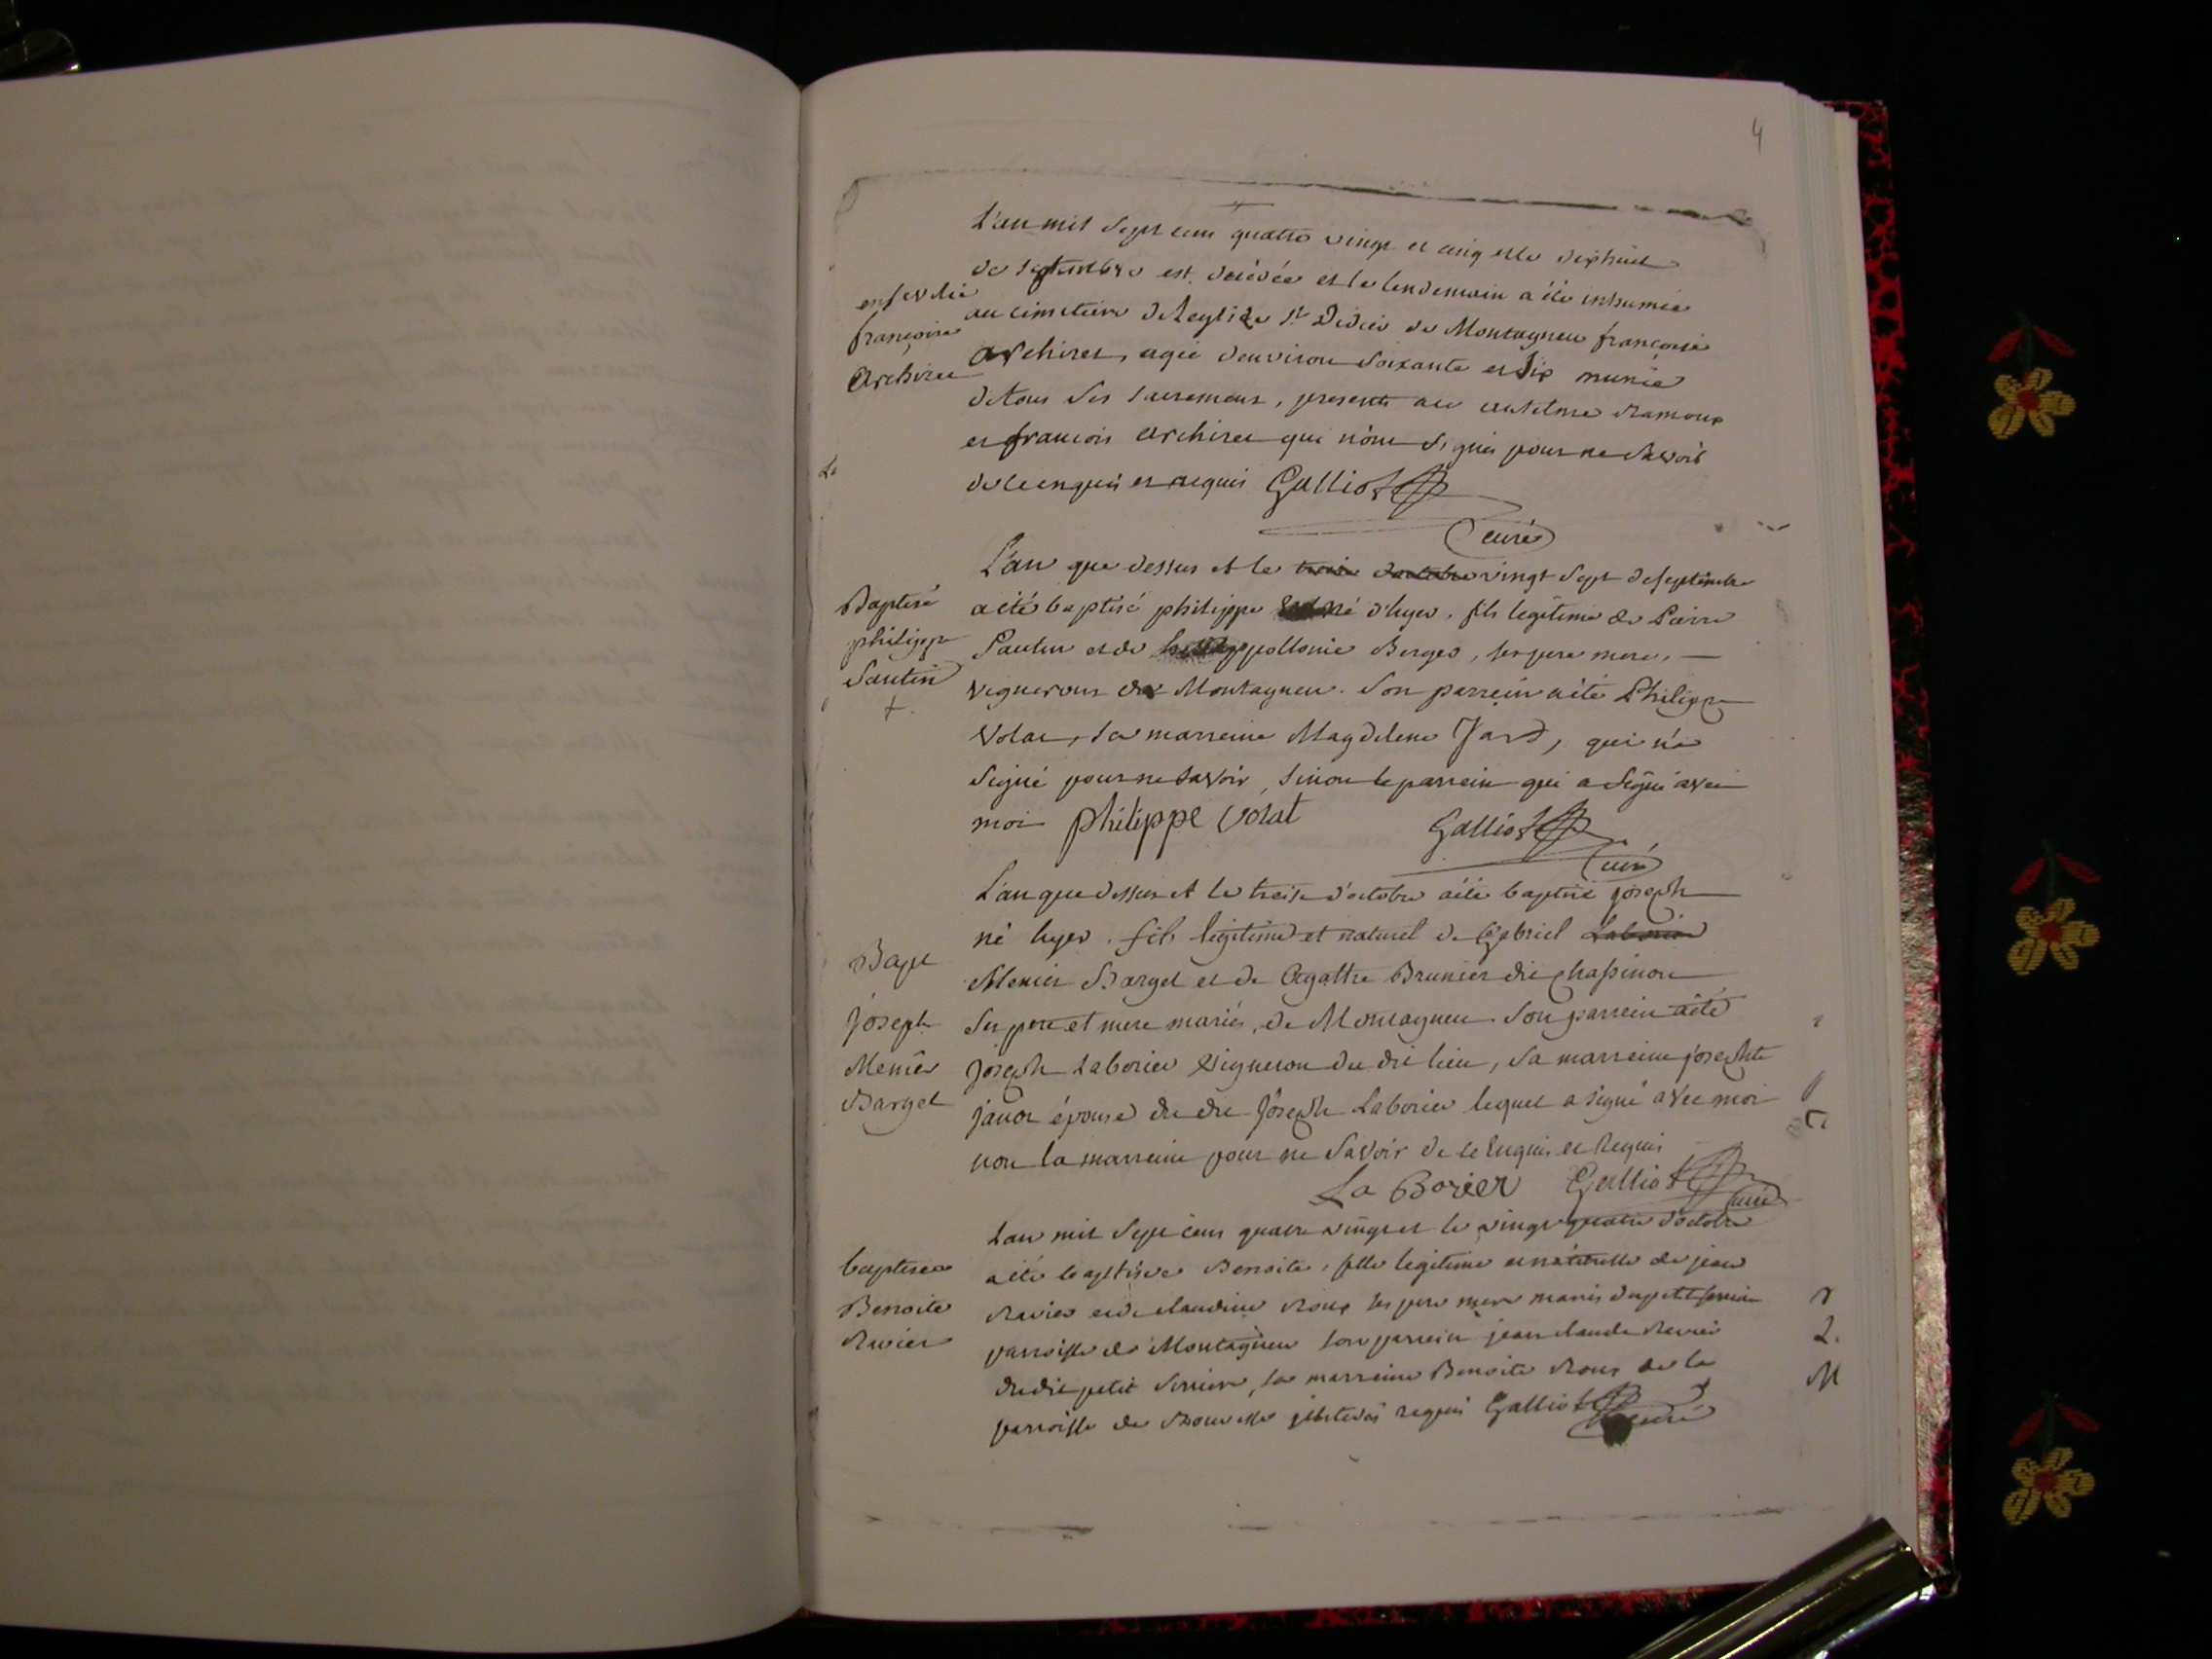 4
L'an mil sept cens quattre vingt et cinq et le dixhuit
de septembre est décédée et le lendemain a été inhumée
au cimetiere de leglise St Didier de Montagneu françoise
Archirel, agée denviron soixante et dix munie
de tous ses sacremens, presents
et francois Archirel qui n'ont signés pour ne savoir
de ce enquis et requis Galliot
curé
françoise
Archirel
L'an que dessus et le trois doctobre vingt sept de septembre
a été baptisé philippe né d'hyer, fils legitime de Pierre
Pautin et de appollonie Berger, ses pere mere,
vignerons de Montagneu. Son parrein a été Philippe
Volat, sa marreine Magdelene Jard, qui n'a
signé pour ne savoir, sinon le parrein qui a signé avec
moi philippe volat Galliot
curé
Baptisé
philippe
Pautin
+
L'an que dessus et le treise d'octobre a été baptisé joseph
né hyer, fils légitime et naturel de Gabriel Laborier
Menier Barget et de Agatthe Brunier dit Chassinon
ses pere et mere mariés, de Montagneu. Son parrein a été
joseph Laborier vigneron du dit lieu, sa marreine josephte
janot épouse du dit joseph Laborier lequel a signé avec moi
non la marreine pour ne savoir de ce enquis et requis
La Borier Galliot
curé
Bapt
joseph
Menier
Barget
L'an mil sept cens quatre vingt et le vingt quatre d'octobre
a été baptisée Benoite, fille legitime et naturelle de jean
Ravier et de claudine Roux ses pere mere mariés du petit serrier
parroisse de Montagneu son parrein jean claude Ravier
du dit petit serrier, sa marreine Benoite Roux de la
parroisse de requis Galliot
curé
baptisée
Benoite
Ravier